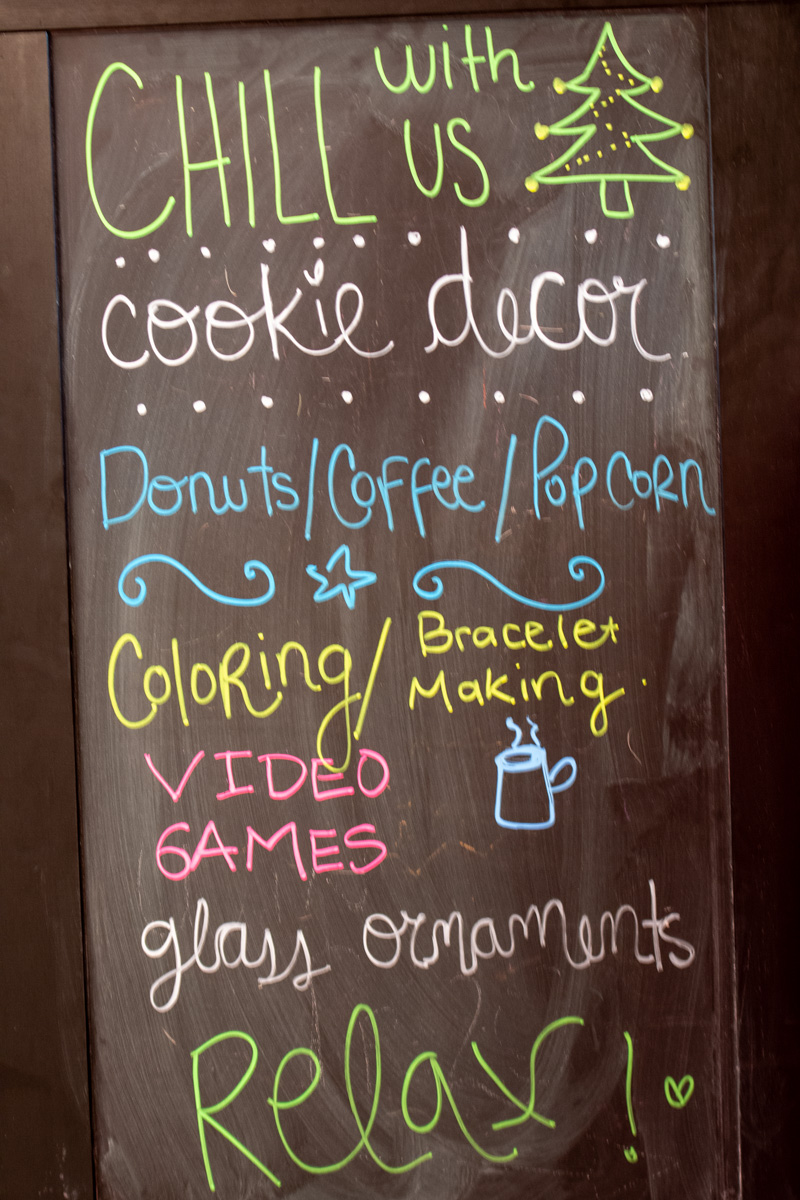 CHILL with us
cookie decor
Donuts/Coffee/Popcorn
Coloring/Bracelet Making
VIDEO
GAMES
glass ornaments
Relax!